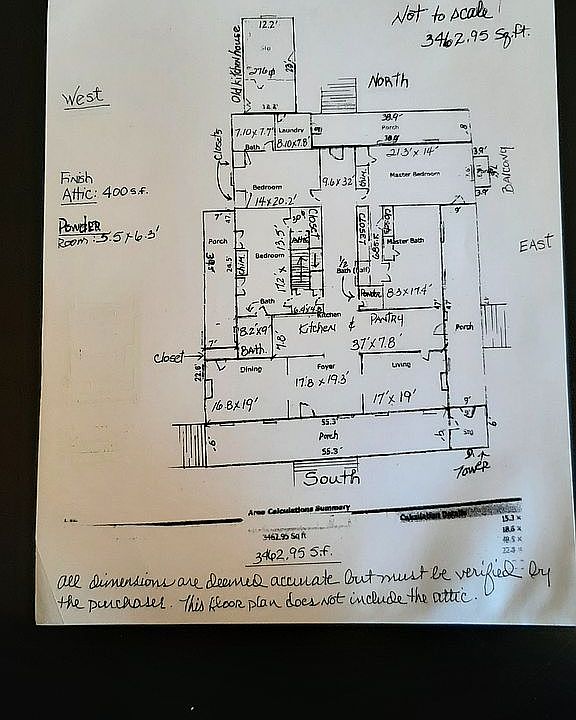 Not to scale!
3462.95 Sq.Ft.
12.2'
Old kitchenhouse
Sto
276 ф
NORTH
West
38.9'
Porch
7.10 x 7.7'
Laundry
8.10 x 7.8'
Bath
Closets
21.3' x 14'
3.9'
BALCONY
3.9'
Finish
Attic: 400 s.f.
9.6 x 32'
Master Bedroom
Bedroom
14 x 20.2'
Powder
Room: 5.5 x 6.3'
7'
9'
Porch
CLOSET
CLOSET
Master Bath
EAST
13.5'
Bedroom
17.2' x
1/2
Bath (half)
Powder
8.3 x 17.4'
Bath
6.4 x
Kitchen
KITCHEN & PANTRY
8.2' x 9'
BATH
7.8'
37' x 7.8
Porch
closet
7'
22.8'
Dining
Foyer
Living
17.8 x 19.3'
16.8 x 19'
17' x 19'
9'
55.3'
6'
Porch
Sto
6'
55.3'
South
TOWER
Area Calculations Summary
Calculation Details
3462.95 Sq ft
3462.95 S.f.
All dimensions are deemed accurate but must be verified by
the purchases. This floor plan does not include the attic.